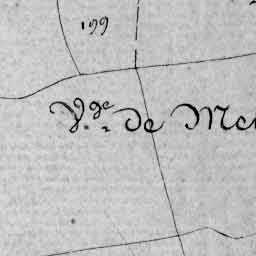 199
V.ge de Me